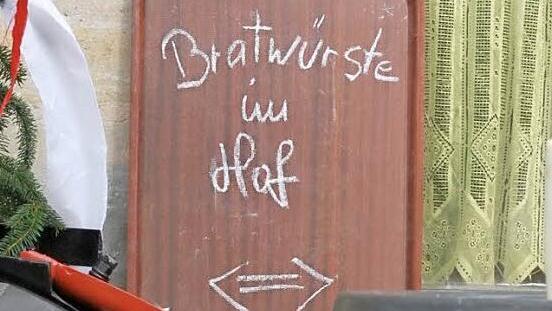 Bratwürste
im
Hof
⇔